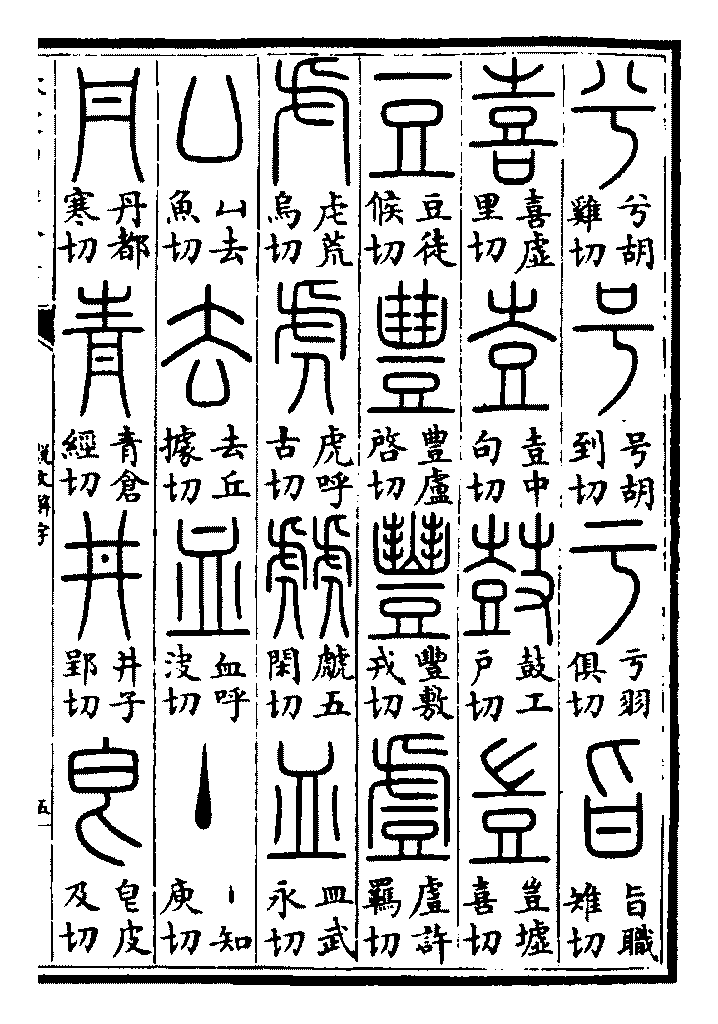 兮 兮胡雞切 号 号胡到切 亏 亏羽俱切 旨 旨職雉切
喜 喜虛里切 壴 壴中句切 鼓 鼓工戶切 豈 豈墟喜切
豆 豆徒候切 豊 豊盧啓切 豐 豐敷戎切 䖒 䖒許羈切
虍 虍荒烏切 虎 虎呼古切 虤 虤五閑切 皿 皿武永切
凵 凵去魚切 去 去丘據切 血 血呼決切 丶 丶知庾切
丹 丹都寒切 青 青倉經切 井 井子郢切 皀 皀皮及切
說文解字 五